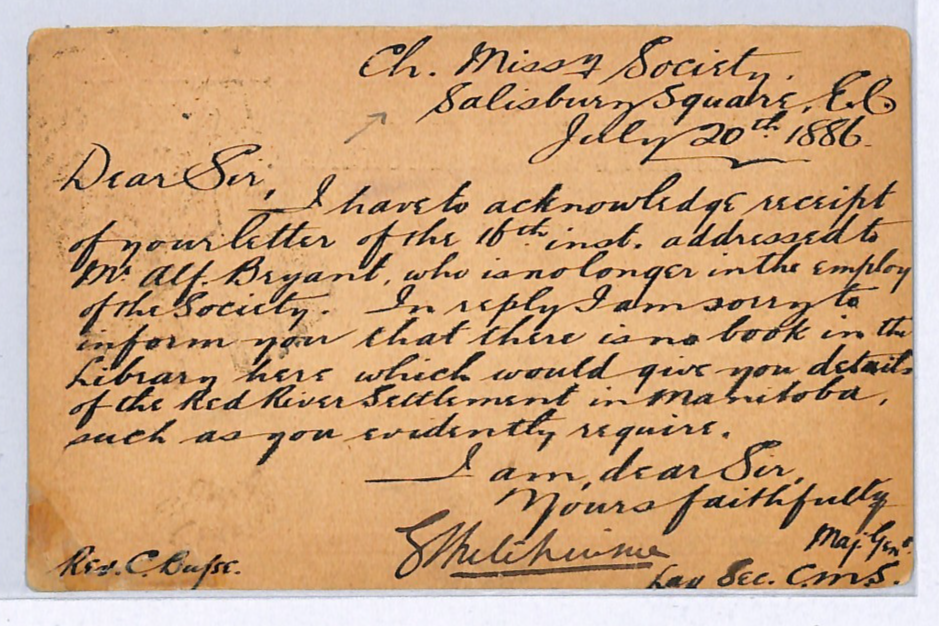 Ch. Missy Society.
Salisbury Square, E.C.
July 20th 1886.
Dear Sir,
I have to acknowledge receipt
of your letter of the 16th inst. addressed to
Mr Alf. Bryant, who is no longer in the employ
of the Society. In reply I am sorry to
inform you that there is no book in the
Library here which would give you details
of the Red River Settlement in Manitoba,
such as you evidently require.
I am, dear Sir,
Yours faithfully
Maj. Genl.
Lay Sec. C.M.S.
Rev. C.